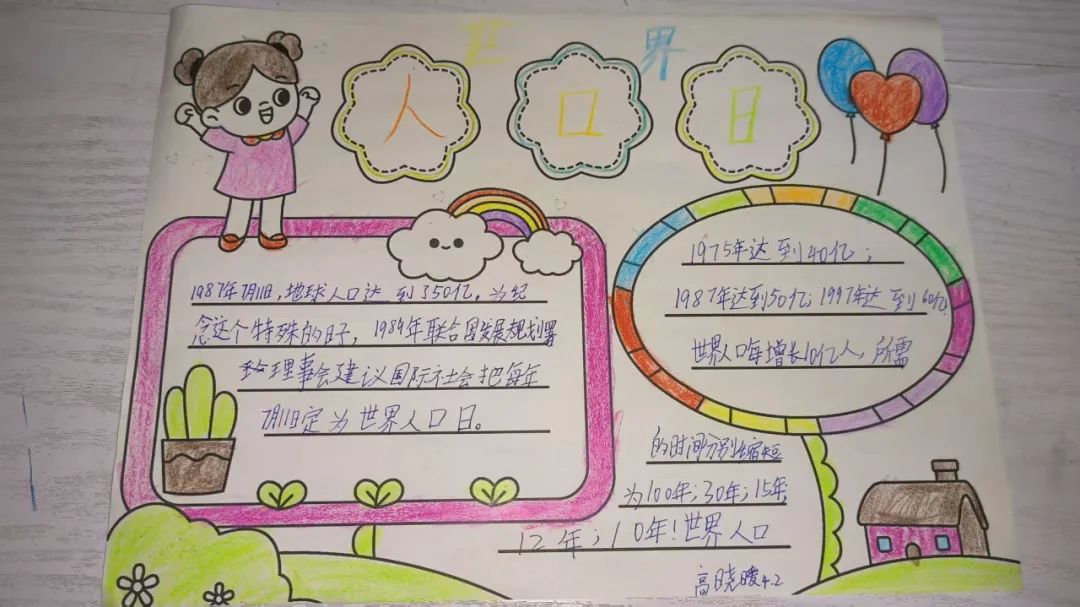 世界
人口日
1987年7月11日，地球人口达到350亿，为纪
念这个特殊的日子，1989年联合国发展规划署
理事会建议国际社会把每年
7月11日定为世界人口日。
1975年达到40亿；
1987年达到50亿；1997年达到60亿
世界人口每增长10亿人，所需
的时间分别缩短
为100年；30年；15年
12年；10年！世界人口
高晓暖4.2